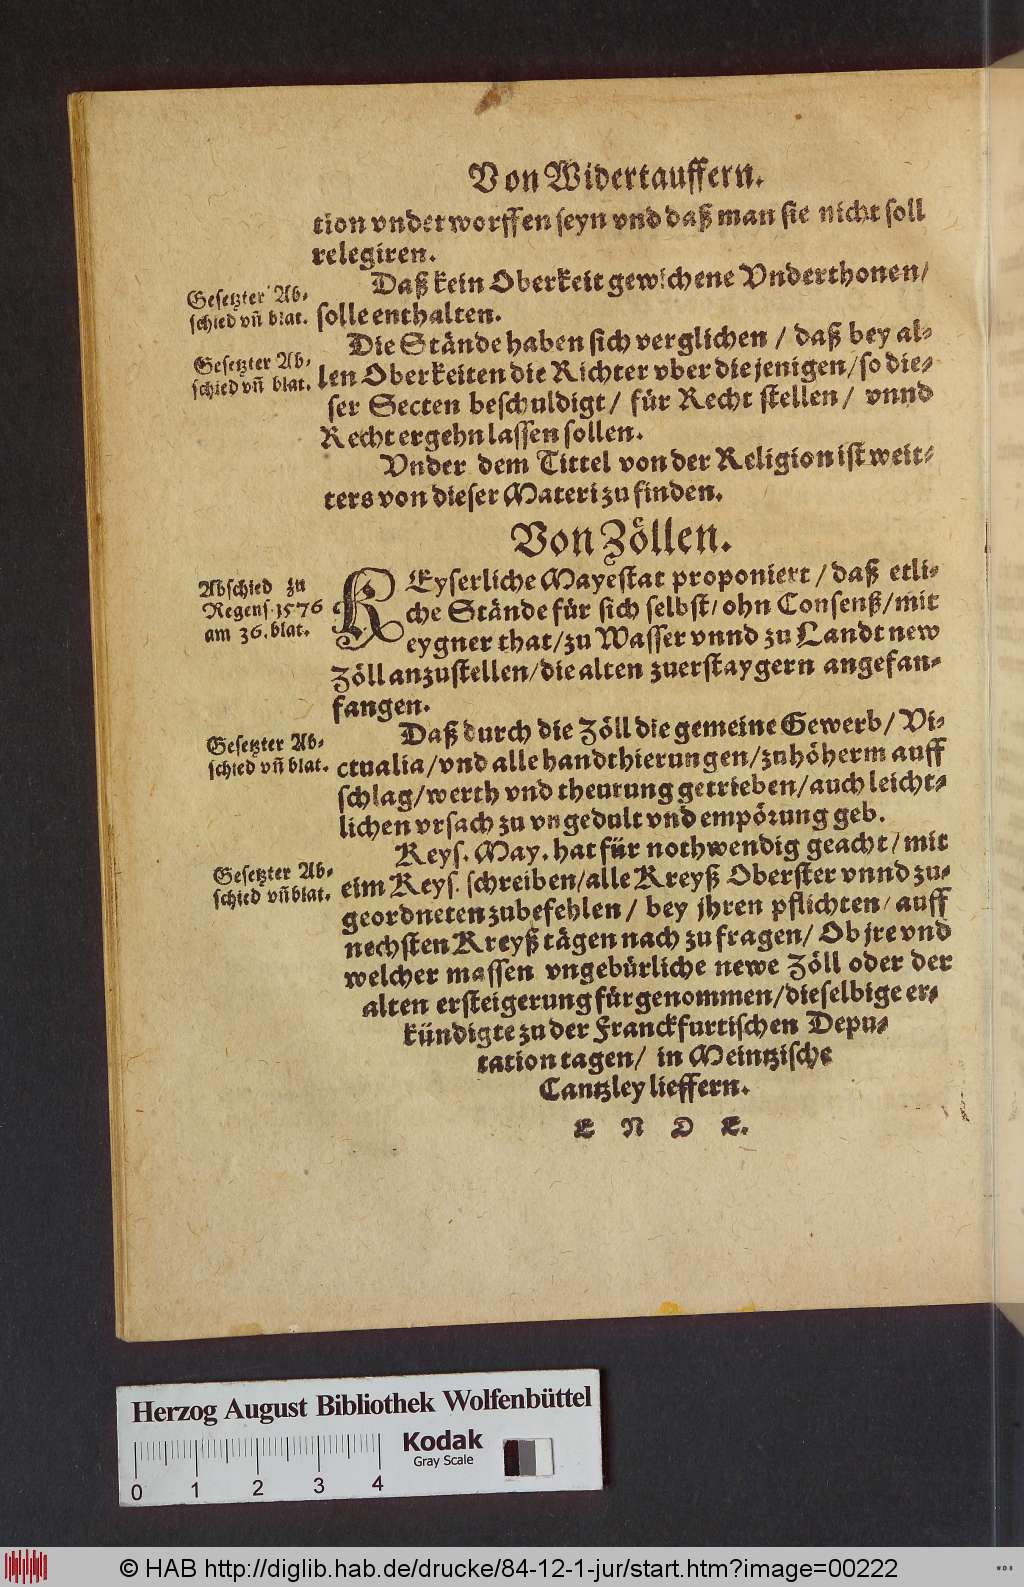 Von Widertauffern.
tion vnderworffen seyn vnd daß man sie nicht soll
relegiren.
Daß kein Oberkeit gewichene Vnderthonen/
solle enthalten.
Gesetzter Ab-
schied vñ blat.
Die Stände haben sich verglichen / daß bey al-
len Oberkeiten die Richter vber die jenigen/so die-
ser Secten beschuldigt/ für Recht stellen/ vnnd
Recht ergehn lassen sollen.
Gesetzter Ab-
schied vñ blat.
Vnder dem Tittel von der Religion ist weit-
ters von dieser Materi zu finden.
Von Zöllen.
KEyserliche Mayestat proponiert / daß etli-
che Stände für sich selbst/ ohn Consenß/mit
eygner that/zu Wasser vnnd zu Landt new
Zöll anzustellen/die alten zuerstaygern angefan-
fangen.
Abschied zu
Regens. 1576
am 36. blat.
Daß durch die Zöll die gemeine Gewerb/ Vi-
ctualia/vnd alle handthierungen/zu höherm auff
schlag/werth vnd theurung getrieben/auch leicht-
lichen vrsach zu vngedult vnd empörung geb.
Gesetzter Ab-
schied vñ blat.
Keys. May. hat für nothwendig geacht/ mit
eim Keys. schreiben/alle Kreyß Oberster vnnd zu-
geordneten zubefehlen/ bey jhren pflichten/ auff
nechsten Kreyßtägen nach zu fragen/ Ob jre vnd
welcher massen vngebürliche newe Zöll oder der
alten ersteigerung fürgenommen/dieselbige er-
kündigte zu der Franckfurtischen Depu-
tation tagen/ in Meintzische
Cantzley lieffern.
Gesetzter Ab-
schied vñ blat.
E N D E.
Herzog August Bibliothek Wolfenbüttel
Kodak
Gray Scale
0 1 2 3 4
© HAB http://diglib.hab.de/drucke/84-12-1-jur/start.htm?image=00222